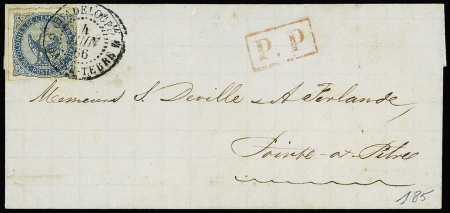 GUADELOUPE
4
JUIN
66
BASSE-TERRE
P.P
Messieurs S. Deville & A Ferlande,
Pointe-à-Pitre
185